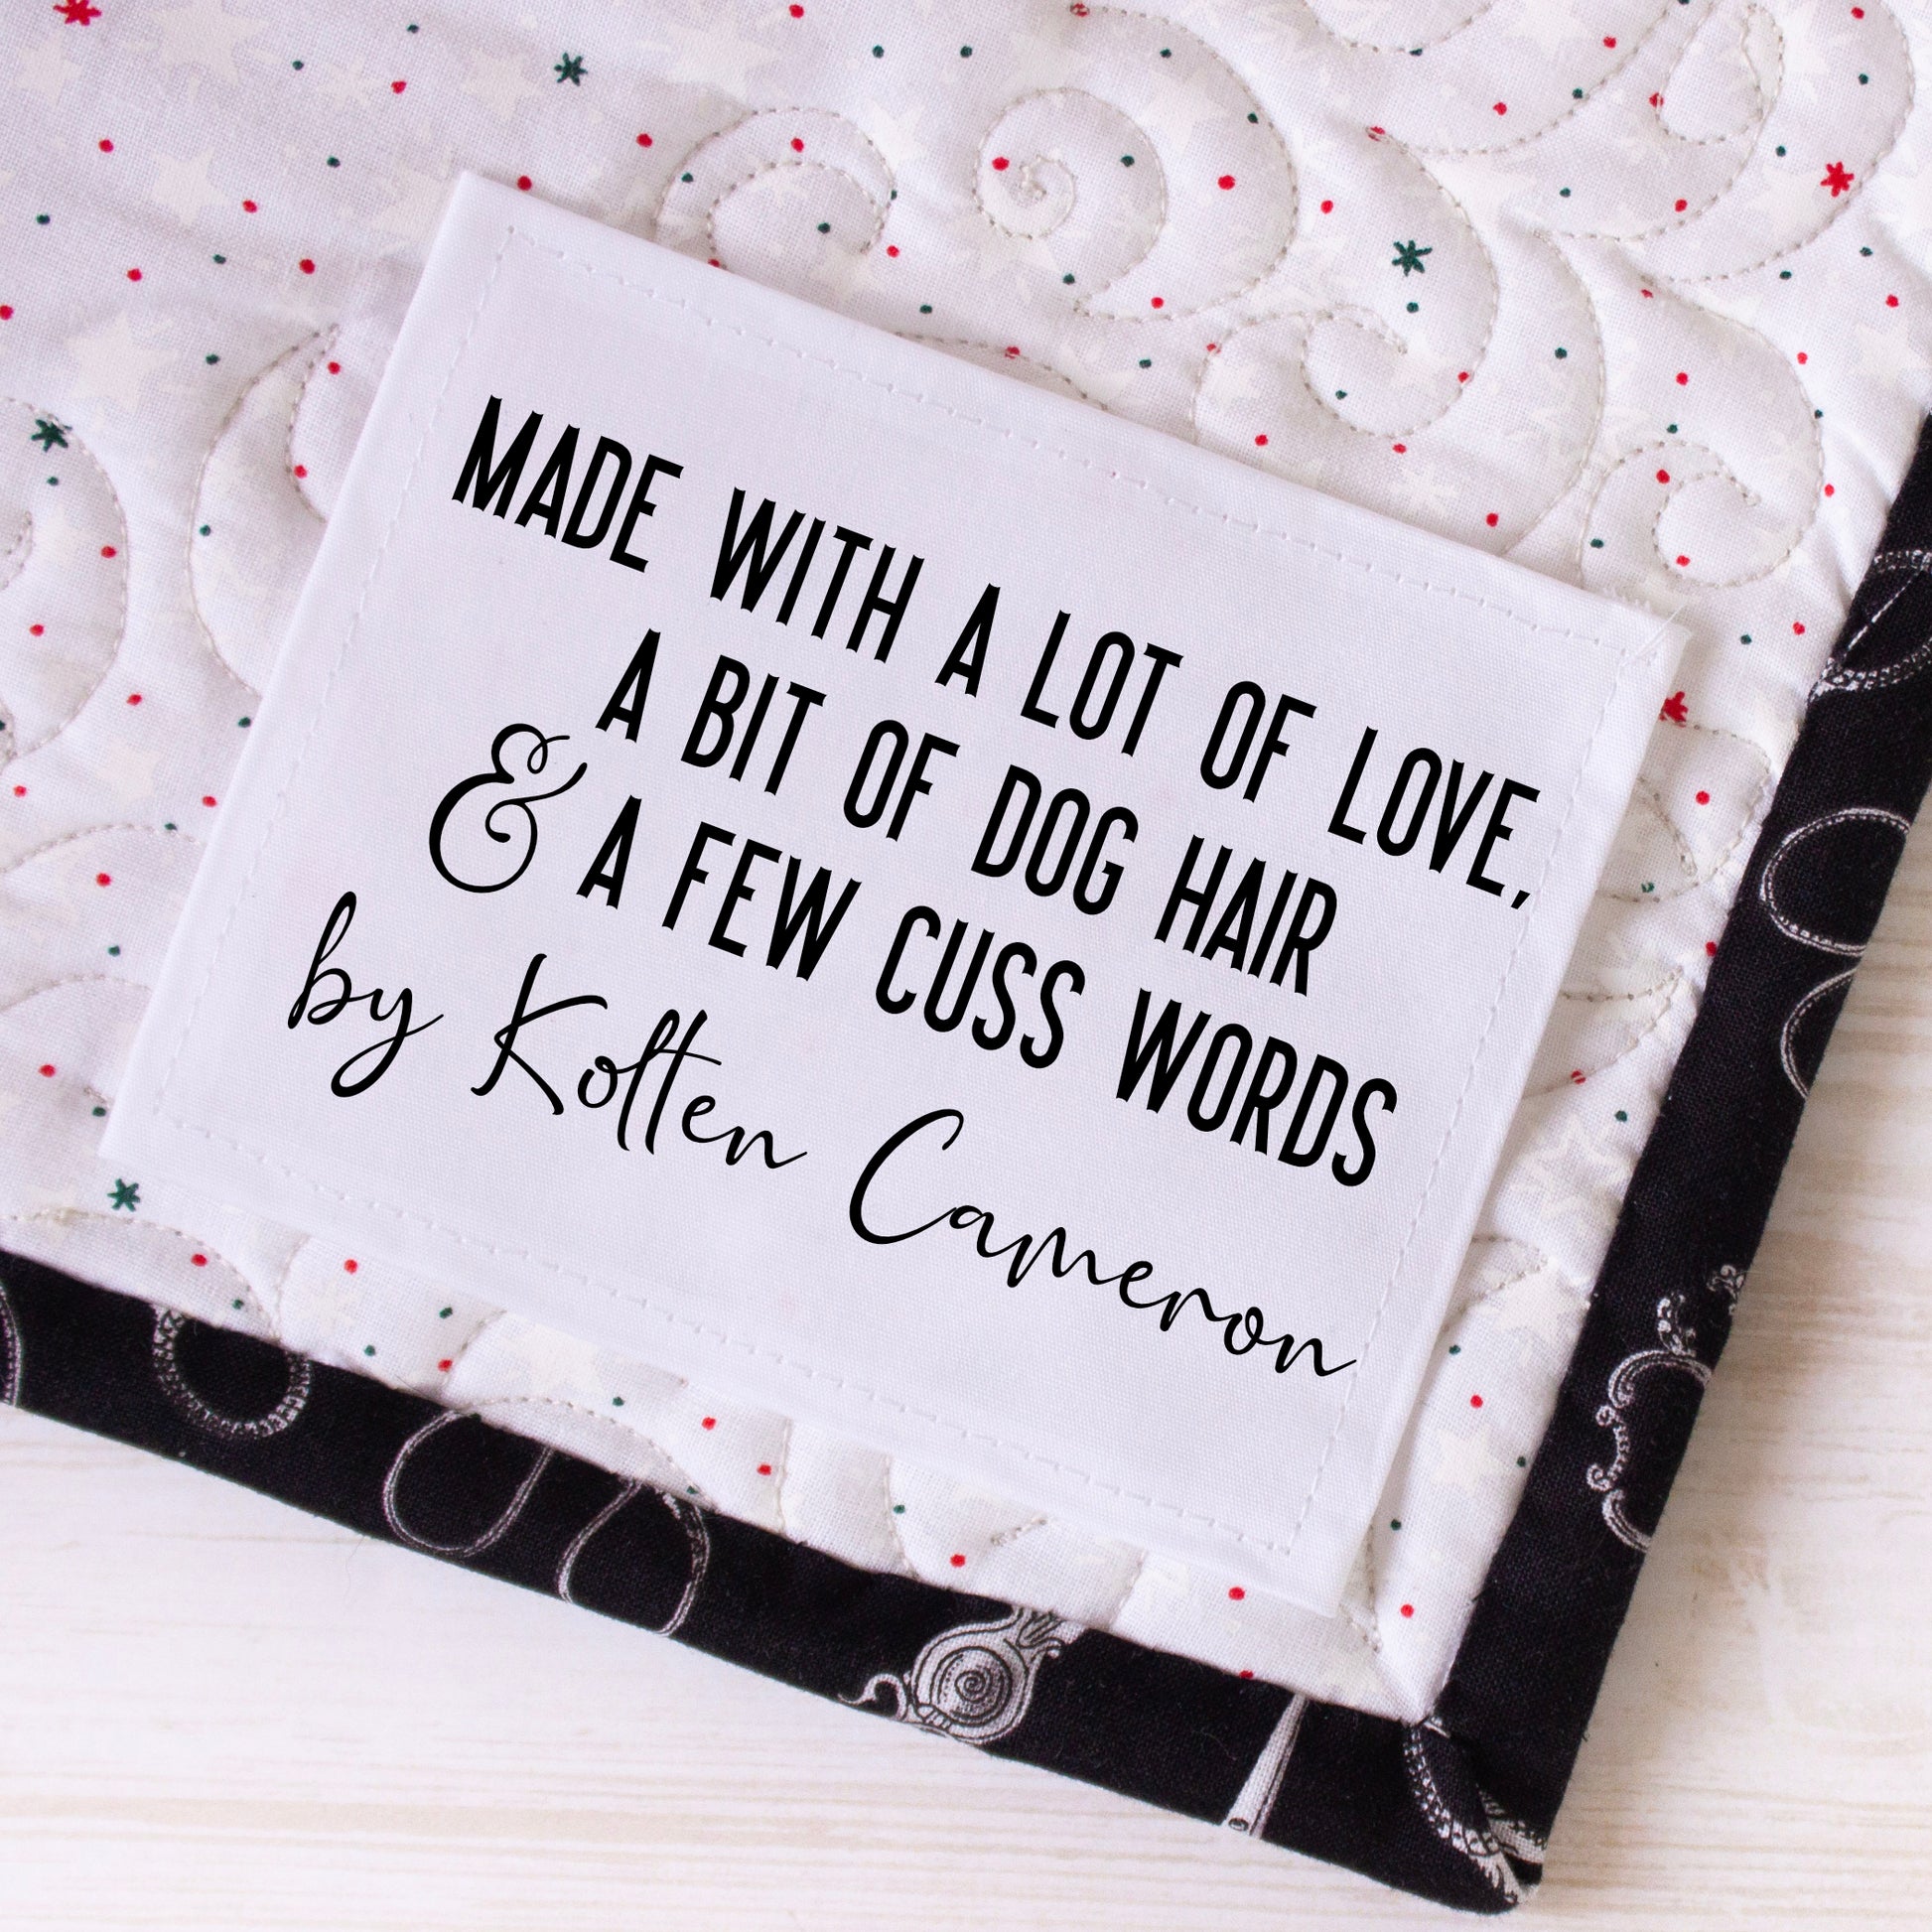 MADE WITH A LOT OF LOVE,
A BIT OF DOG HAIR
& A FEW CUSS WORDS
by Kolten Cameron